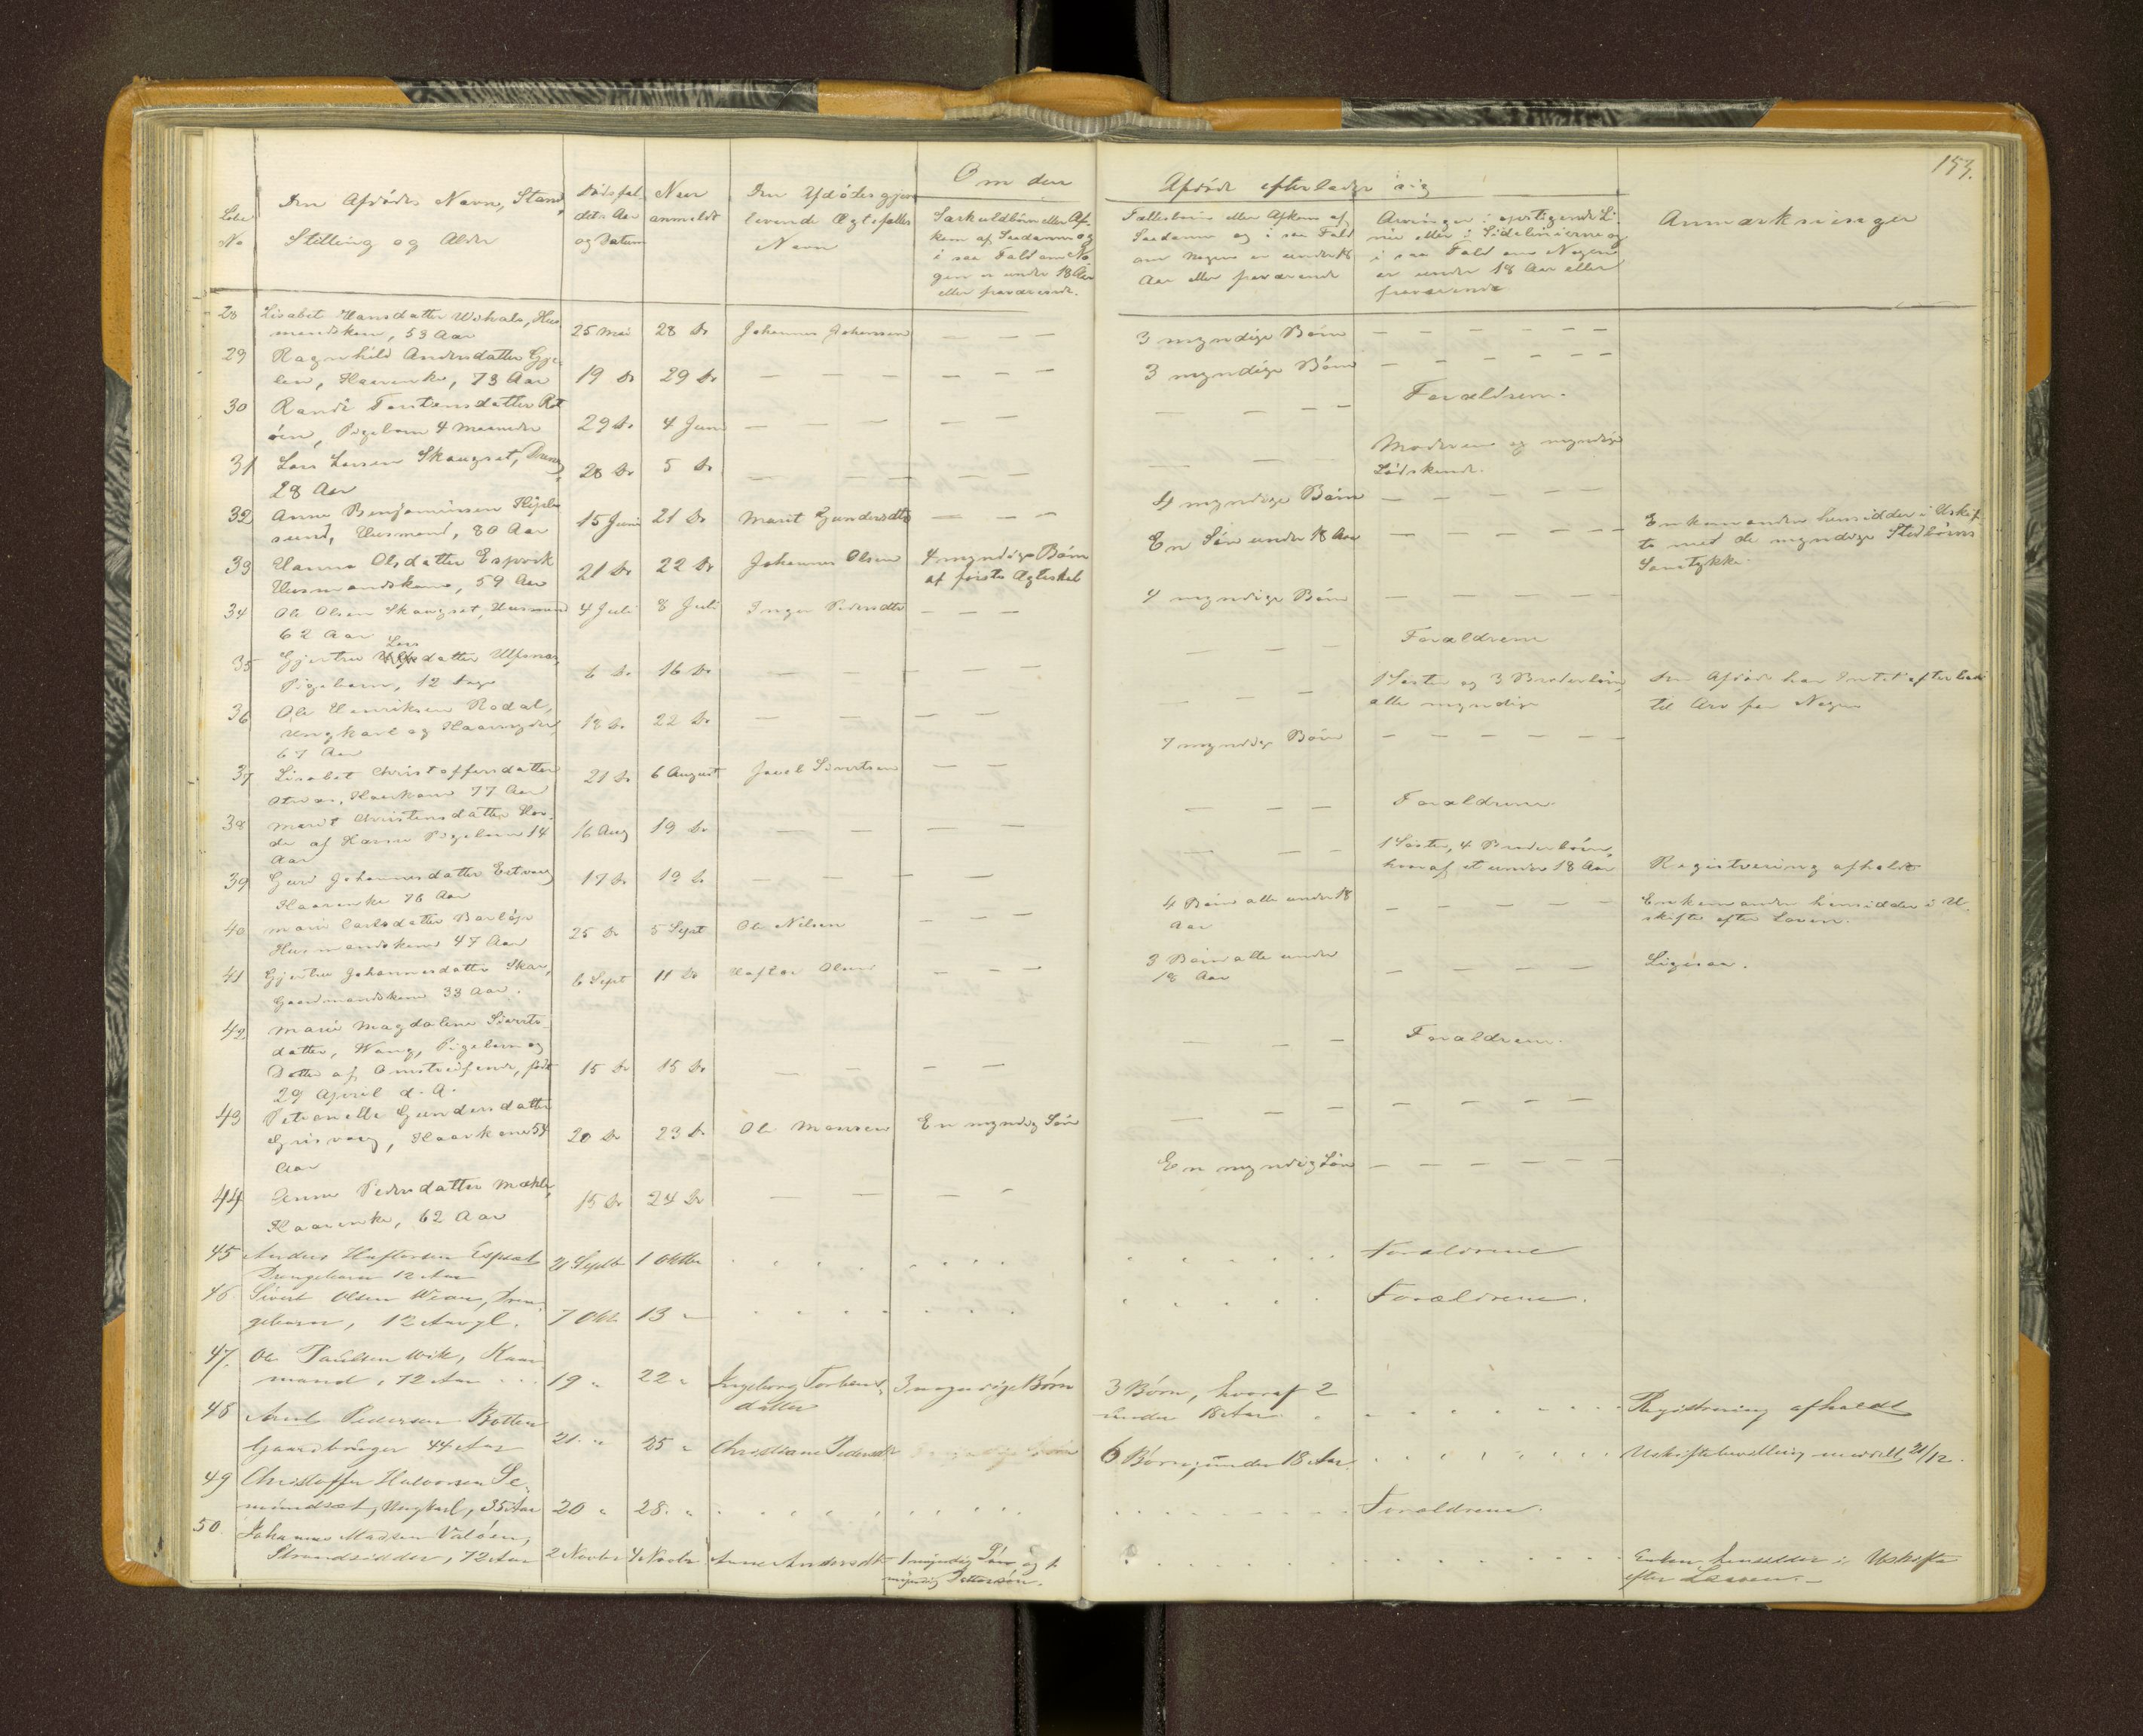 157.
Om den
Afdøde efterlader sig
Løbe
No
Den Afdødes Navn, Stand,
Stilling og Alder
Dødsfal
dets Aar
og Datum
Naar
anmeldt
Den Afdødes gjen
levende Ægtefælles
Navn
Særkuldbørn eller Af-
kom af Saadanne og
i saa Fald om No
gen er under 18 Aar
eller fraværende.
Fællesbørn eller Afkom af
Saadanne og i saa Fald
om Nogen er under 18
Aar eller fraværende
Arvinger i opstigende Li
nie eller i Sidelinierne og
i saa Fald om Nogen
er under 18 Aar eller
fraværende
Anmærkninger
28 Lisabet Hansdatter Hus
mandskone, 53 Aar 25 Mai 28 Do Johannes Johansen — — — 3 myndige Børn — — — — — —
29 Ragnhild Andersdatter Gje
len, Haarenke, 73 Aar 19 Do 29 Do — — — — — — — 3 myndige Børn — — — — — —
30 Randi Torstensdatter Rot
øien, Pigebarn 4 Maaneder 29 Do 4 Juni — — — — — — — — — — Forældrene.
31 Lars Larsen Skaugset, Dreng,
28 Aar 28 Do 5 Do — — — — — — — — — Moderen og myndige
Södskende.
32 Arne Benjaminsen
sund, Husmand, 80 Aar 15 Juni 21 Do Marit Gundersdtr — — — 4 myndige Børn — — — — —
33 Hanna Olsdatter Espvik
Husmandskone, 59 Aar 21 Do 22 Do Johannes Olsen 4 myndige Børn
af første Ægteskab En Søn under 18 Aar — — — — — — Enkemanden hensidder i Uskif
te med de myndige Stedbørns
Samtykke.
34 Ole Olsen Skaugset, Husmand
62 Aar 4 Juli 8 Juli Inger Pedersdtr — — — 4 myndige Børn — — — — —
Lars
35 Gjertru datter Ulfsnes,
Pigebarn, 12 Dage 6 Do 16 Do — — — — — — — — — — Forældrene
36 Ole Henriksen Rodal,
Ungkarl og
67 Aar 18 Do 22 Do — — — — — — — — 1 Søster og 3 Broderbørn,
alle myndige Den Afdøde har Intet efterladt
til Arv for Nogen
37 Lisabet Christoffersdatter
Otnes, Haarkone 77 Aar 21 Do 6 August Jacob Sivertsen — — 7 myndige Børn — — — — — —
38 Marit Christensdatter
de af Pigebarn 14
Aar 16 Aug 19 Do — — — — — — — Forældrene.
39 Guri Johannesdatter Eitvaag
Haarenke 76 Aar 17 Do 19 Do — — — — — — — — 1 Søster, 4 Broderbørn,
hvoraf et under 18 Aar Registrering afholdt
40 Marie Carlsdatter
Husmandskone 47 Aar 25 Do 5 Sept Ole Nilsen — — — 4 Børn alle under 18
Aar — — — — — Enkemanden hensidder i U-
skifte efter Loven.
41 Gjertru Johannesdatter Skar,
Gaardmandskone 33 Aar. 6 Sept 11 Do Haftor Olsen — — — 3 Børn alle under
18 Aar — — — — — Ligesaa.
42 Marie Magdalene Siverts-
datter, Wang, Pigebarn og
Datter af Omstreifende, født
29 April d. A. 15 Do 15 Do — — — — — — — Forældrene.
43 Petronelle Gundersdatter
Grisvaag, Haarkone 54
Aar 20 Do 23 Do Ole Monsen En myndig Søn — — — — — — — —
44 Anne Pedersdatter
Haarenke, 62 Aar 15 Do 24 Do — — — — En myndig Søn — — — — — —
45 Anders Haftorsen Espset
Drengebarn 12 Aar 21 Septb 1 Oktbr . . . . . . . Forældrene
46 Sivert Olsen Drен-
gebarn, 12 Aar gl. 7 Okt. 13 " . . . . . . . Forældrene.
47. Ole Paulsen Wik, Kaar-
mand, 72 Aar . . 19 " 22 " Ingeborg Torbens-
datter 3 myndige Børn 3 Børn, hvoraf 2
under 18 Aar. . . . . . . . Registrering afholdt
48 Arnt Pedersen Botten
Gaardbruger 44 Aar 21. " 25 " Christiane Pedersdtr 6 Børn, under 18 Aar. . . . . . . Uskiftebevilling meddelt 21/12.
49 Christoffer Halvorsen Se-
mundset, Ungkarl, 35 Aar 20 " 28. " . . . . . . . Forældrene.
50. Johannes Madsen Valøen,
Strandsidder, 72 Aar 2 Novbr 4 Novbr Anne Andersdtr 1 myndig Søn og 1
myndig Dattersøn. . . . . . . Enken hensidder i Uskifte
efter Loven. —